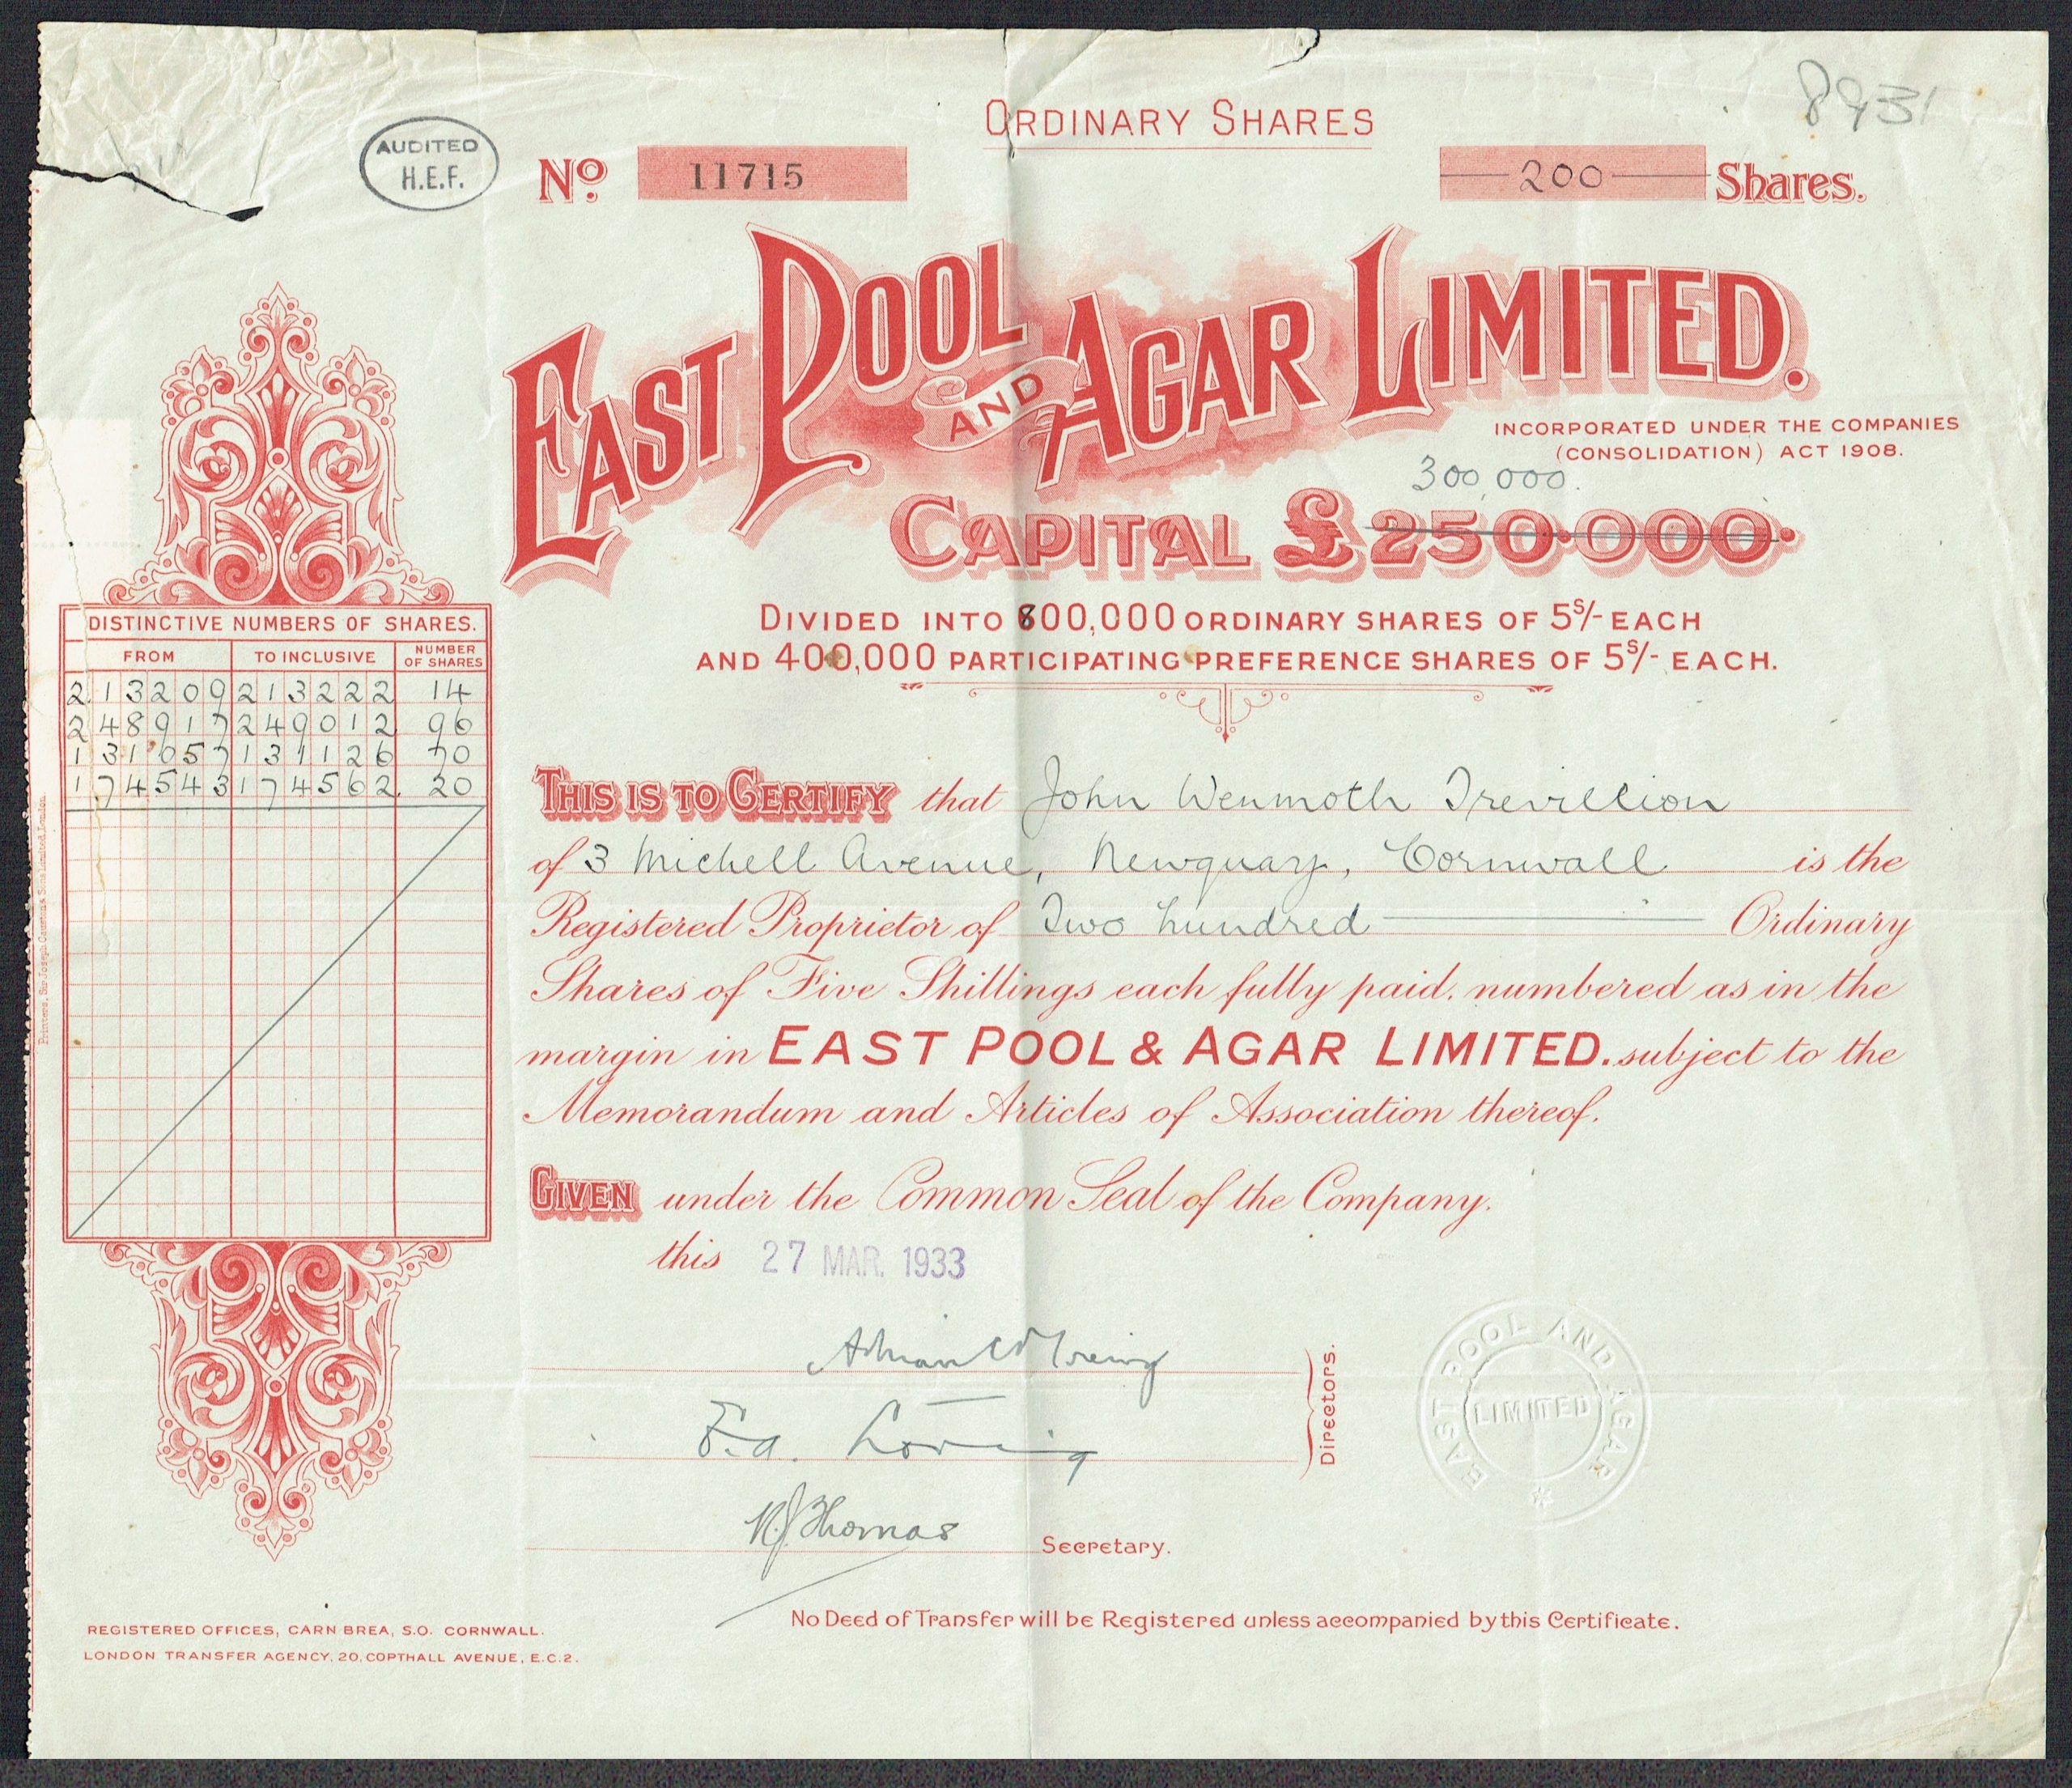 8931
ORDINARY SHARES
AUDITED
H.E.F.
No. 11715
200 Shares.
EAST POOL AND AGAR LIMITED.
INCORPORATED UNDER THE COMPANIES
(CONSOLIDATION) ACT 1908.
300,000.
CAPITAL £250,000.
DIVIDED INTO 800,000 ORDINARY SHARES OF 5s/- EACH
AND 400,000 PARTICIPATING PREFERENCE SHARES OF 5s/- EACH.
DISTINCTIVE NUMBERS OF SHARES.
FROM TO INCLUSIVE NUMBER OF SHARES
213209 213222 14
248917 249012 96
131057 131126 70
174543 174562 20
THIS IS TO CERTIFY that John Wenmoth Trevillion
of 3 Michell Avenue, Newquay, Cornwall is the
Registered Proprietor of Two hundred Ordinary
Shares of Five Shillings each fully paid, numbered as in the
margin in EAST POOL & AGAR LIMITED. subject to the
Memorandum and Articles of Association thereof.
GIVEN under the Common Seal of the Company.
this 27 MAR. 1933
Directors.
EAST POOL AND AGAR
LIMITED
Thomas
Secretary.
No Deed of Transfer will be Registered unless accompanied by this Certificate.
REGISTERED OFFICES, CARN BREA, S.O. CORNWALL.
LONDON TRANSFER AGENCY, 20, COPTHALL AVENUE, E.C.2.
Printers, Sir Joseph Causton & Sons Limited, London.